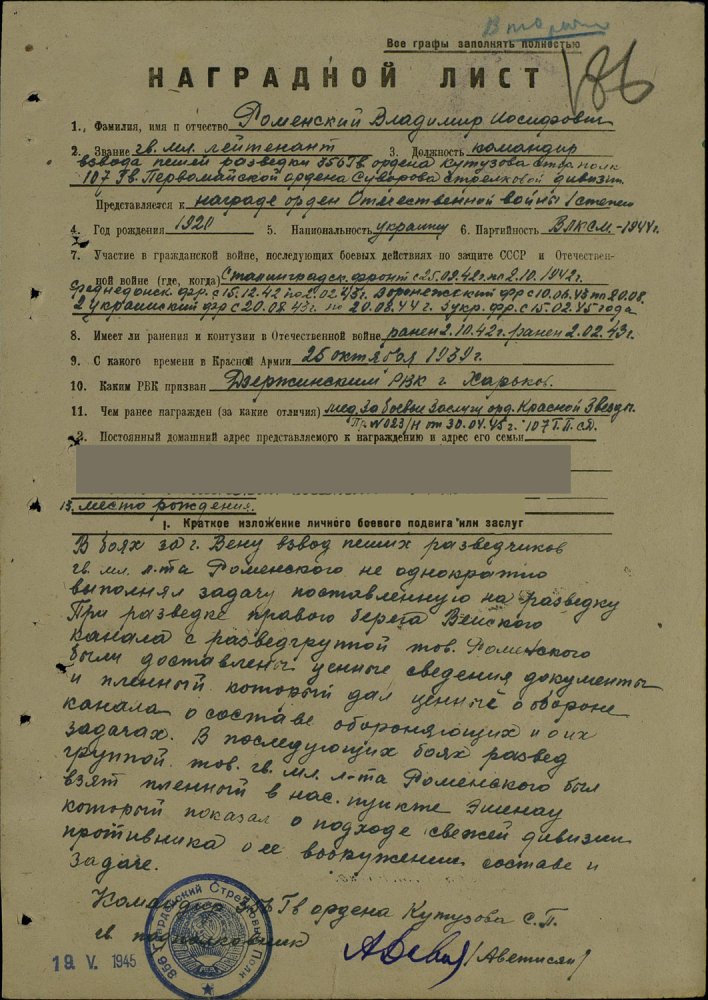 Вторый
Все графы заполнять полностью
НАГРАДНОЙ ЛИСТ
186
1. Фамилия, имя п отчество Роменский Владимир Иосифович
2. Звание гв. мл. лейтенант 3. Должность командир
взвода пешей разведки 356 Гв ордена Кутузова стр. полк
107 Гв. Первомайской ордена Суворова стрелковой дивизии
Представляется к награде орден Отечественной войны I степен
4. Год рождения 1920 5. Национальность украинц 6. Партийность ВЛКСМ - 1944 г.
7. Участие в гражданской войне, последующих боевых действиях по защите СССР и Отечествен-
ной войне (где, когда) Сталинградск. фронт с 25.09.42 г. по 2.10.1942 г.
фр. с 15.12.42 по 2.02.43 г. Воронежский фр с 10.06.43 по 20.08
2 украинский фр с 20.08.43 г. по 20.08.44 г. 3 укр. фр. с 15.02.45 года
8. Имеет ли ранения и контузии в Отечественной войне ранен 2.10.42 г. ранен 2.02.43 г.
9. С какого времени в Красной Армии 25 октября 1939 г.
10. Каким РВК призван Дзержинским РВК г. Харьков.
11. Чем ранее награжден (за какие отличия) мед. За боевые Заслуги орд. Красной Звезды.
Пр. № 023/Н от 30.04.45 г. 107 Г.П. СД.
2. Постоянный домашний адрес представляемого к награждению и адрес его семьи
13. место рождения.
I. Краткое изложение личного боевого подвига или заслуг
В боях за г. Вену взвод пеших разведчиков
гв. мл. л-та Роменского не однократно
выполнял задачу поставленную на разведку
При разведке правого берега Венского
канала с разведгруппой тов. Роменского
были доставлены ценные сведения документы
и пленный который дал ценные о обороне
канала о составе обороняющих и о их
задачах. В последующих боях развед
группой тов. гв. мл. л-та Роменского был
взят пленный в нас. пункте Эшенау
который показал о подходе свежей дивизии
противника о ее вооружении составе и
задаче.
Командир 356 Гв ордена Кутузова С.П.
гв. подполковник /Аветисян/
19. V. 1945
356 Гвардейский Стрелковый Полк